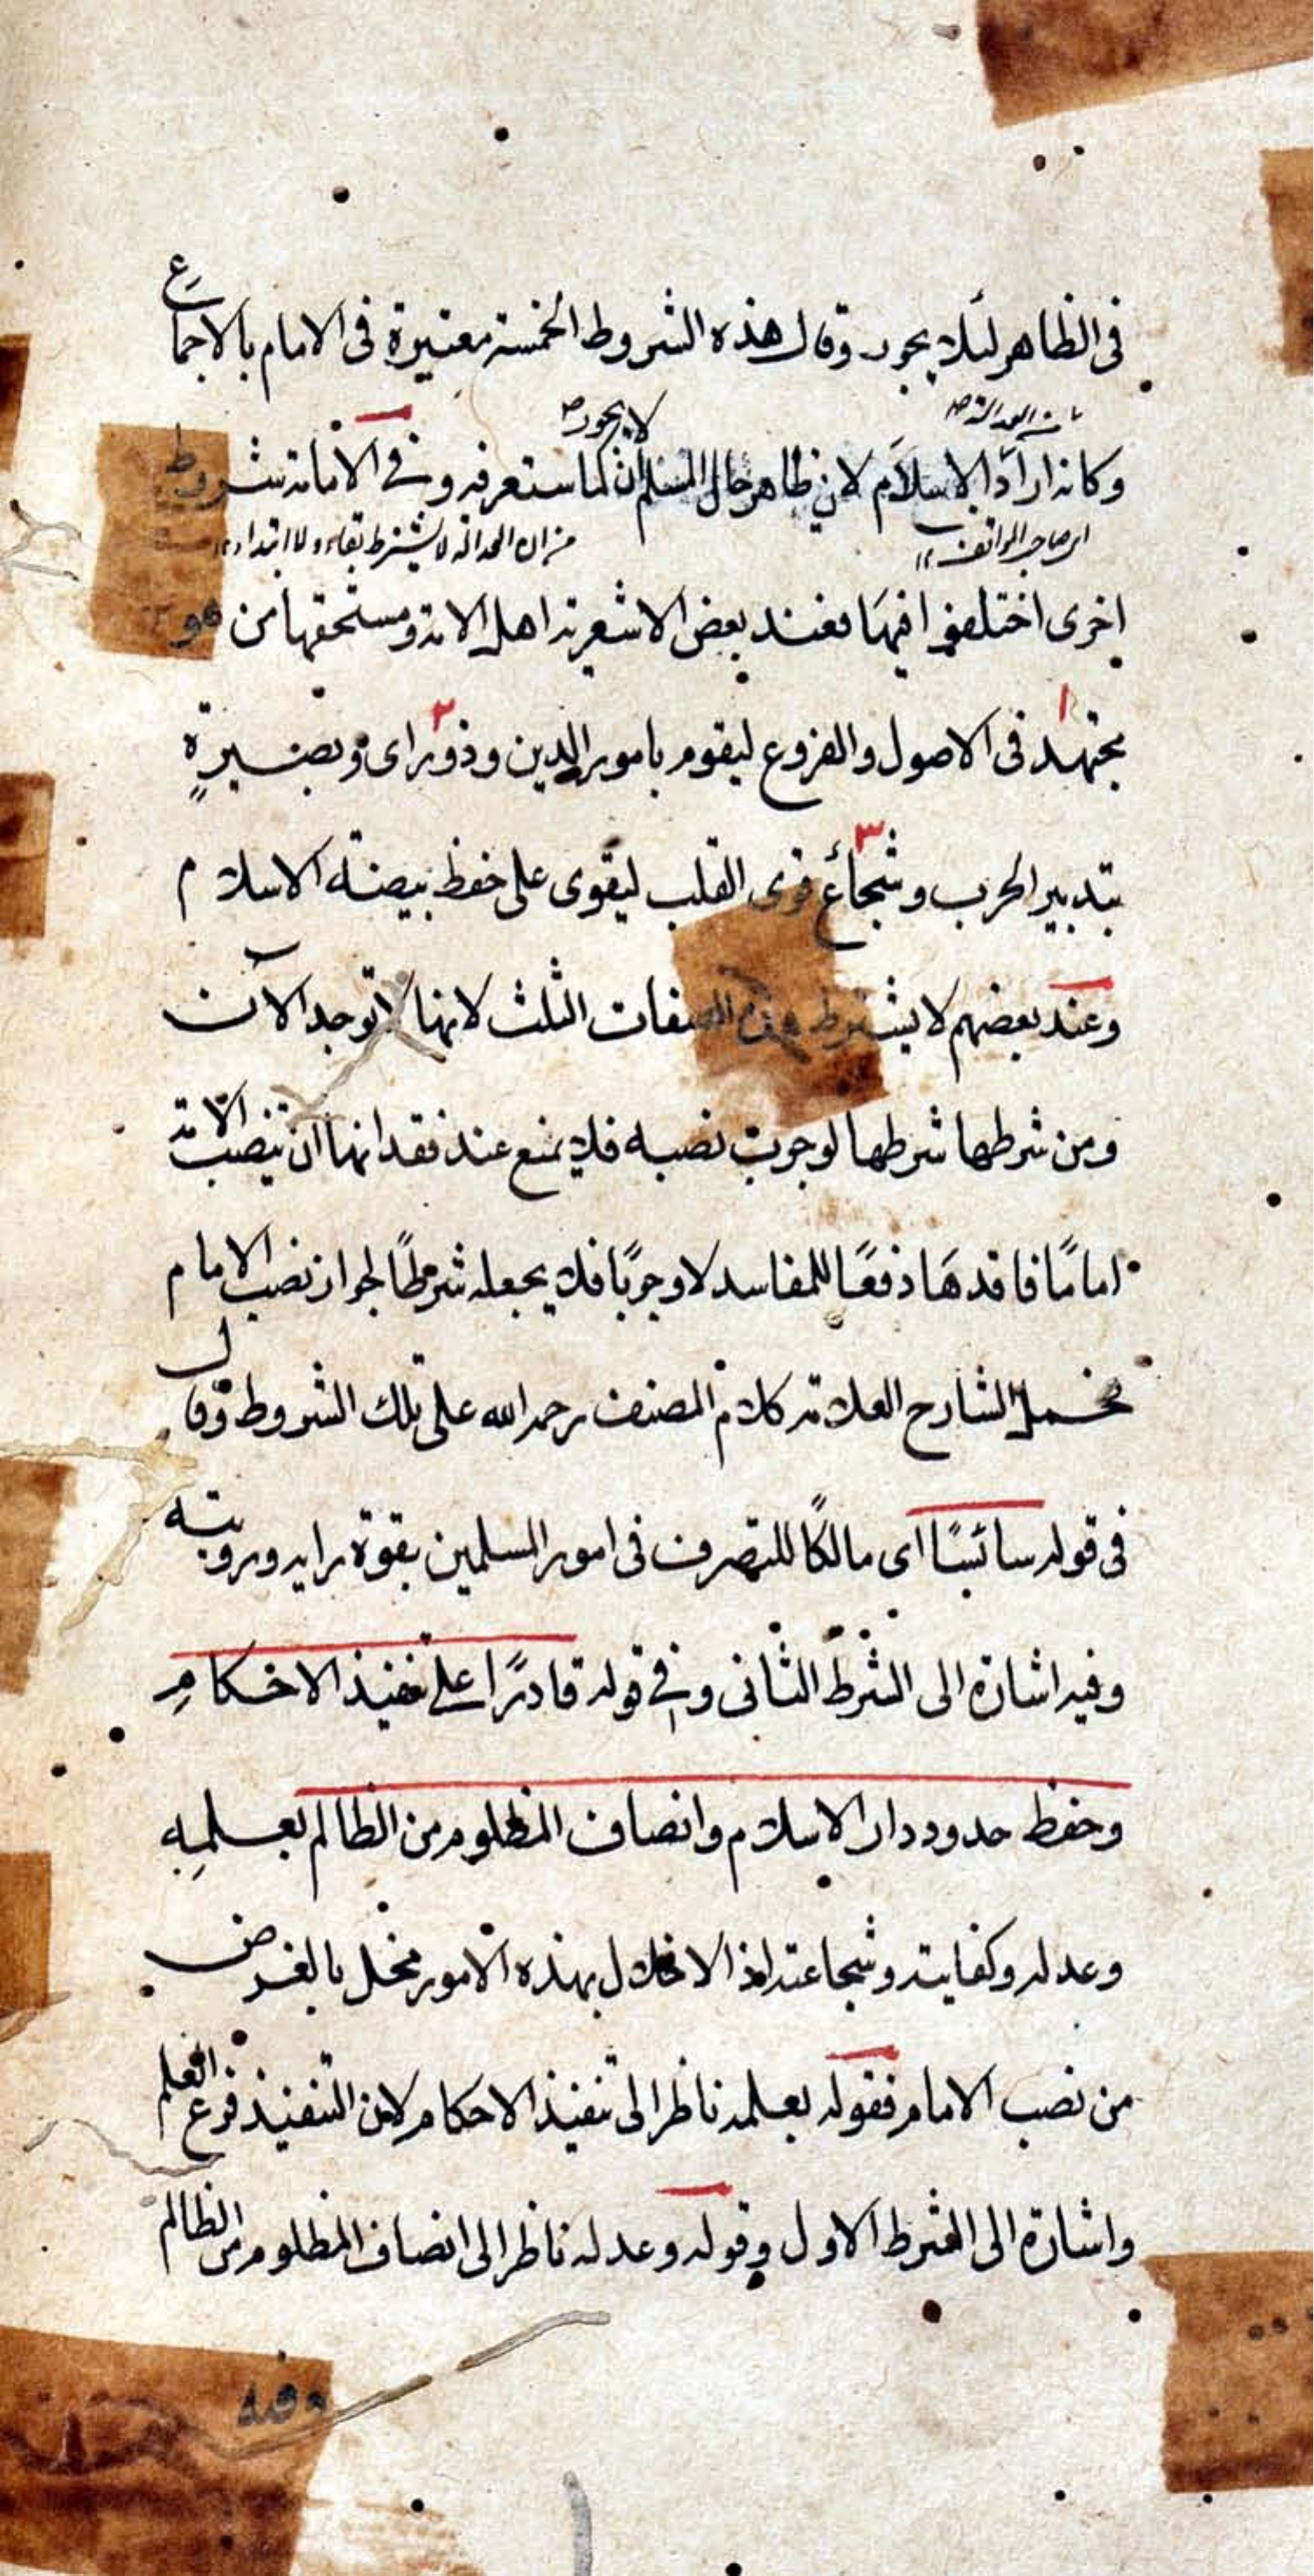 فى الظاهر لئلا يجور وقال هذه الشروط الخمسة معتبرة فى الامام بالاجماع
من العدالة
لا يجور
وكانه اراد الاسلام لان ظاهر حال المسلم ان كما ستعرفه وفى الامامة شروط
اى صاحب المواقف
من ان العدالة لا يشترط بقاء ولا ابتداء
اخرى اختلفوا فيها فعند بعض الاشعرية اهل الامة ومستحقها من هو
١
٢
مجتهد فى الاصول والفروع ليقوم بامور الدين وذو راى وبصيرة
٣
بتدبير الحرب وشجاع قوى القلب ليقوى على حفظ بيضة الاسلام
وعند بعضهم لا يشترط هذه الصفات الثلث لانها لا توجد الآن
ومن شرطها شرطها لوجوب نصبه فلا يمنع عند فقدانها ان ينصب الامة
اماما فاقدها دفعا للمفاسد لا وجوبا فلا يجعله شرطا لجواز نصب الامام
فحمل الشارح العلامة كلام المصنف رحمه الله على تلك الشروط وقال
فى قوله سائسا اى مالكا للتصرف فى امور المسلمين بقوة رايه ورويته
وفيه اشارة الى الشرط الثانى وفى قوله قادرا على تنفيذ الاحكام
وحفظ حدود دار الاسلام وانصاف المظلوم من الظالم بعلمه
وعدله وكفايته وشجاعته اذ الاخلال بهذه الامور مخل بالغرض
من نصب الامام فقوله بعلمه ناظر الى تنفيذ الاحكام لان التنفيذ فرع العلم
واشارة الى الشرط الاول وقوله وعدله ناظر الى انصاف المظلوم من الظالم
وفيه